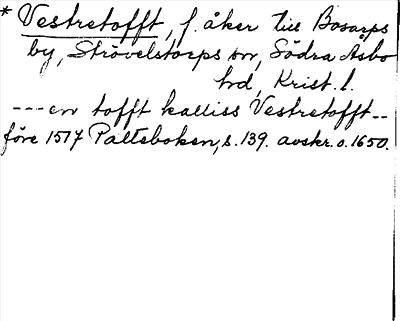 * Vestretofft, f. åker till Bosarps
by, Strövelstorps sn, Södra Åsbo
hd, Krist. l.
--- en tofft kalliss Vestretofft --
före 1517 Palteboken, s. 139. avskr. o. 1650.